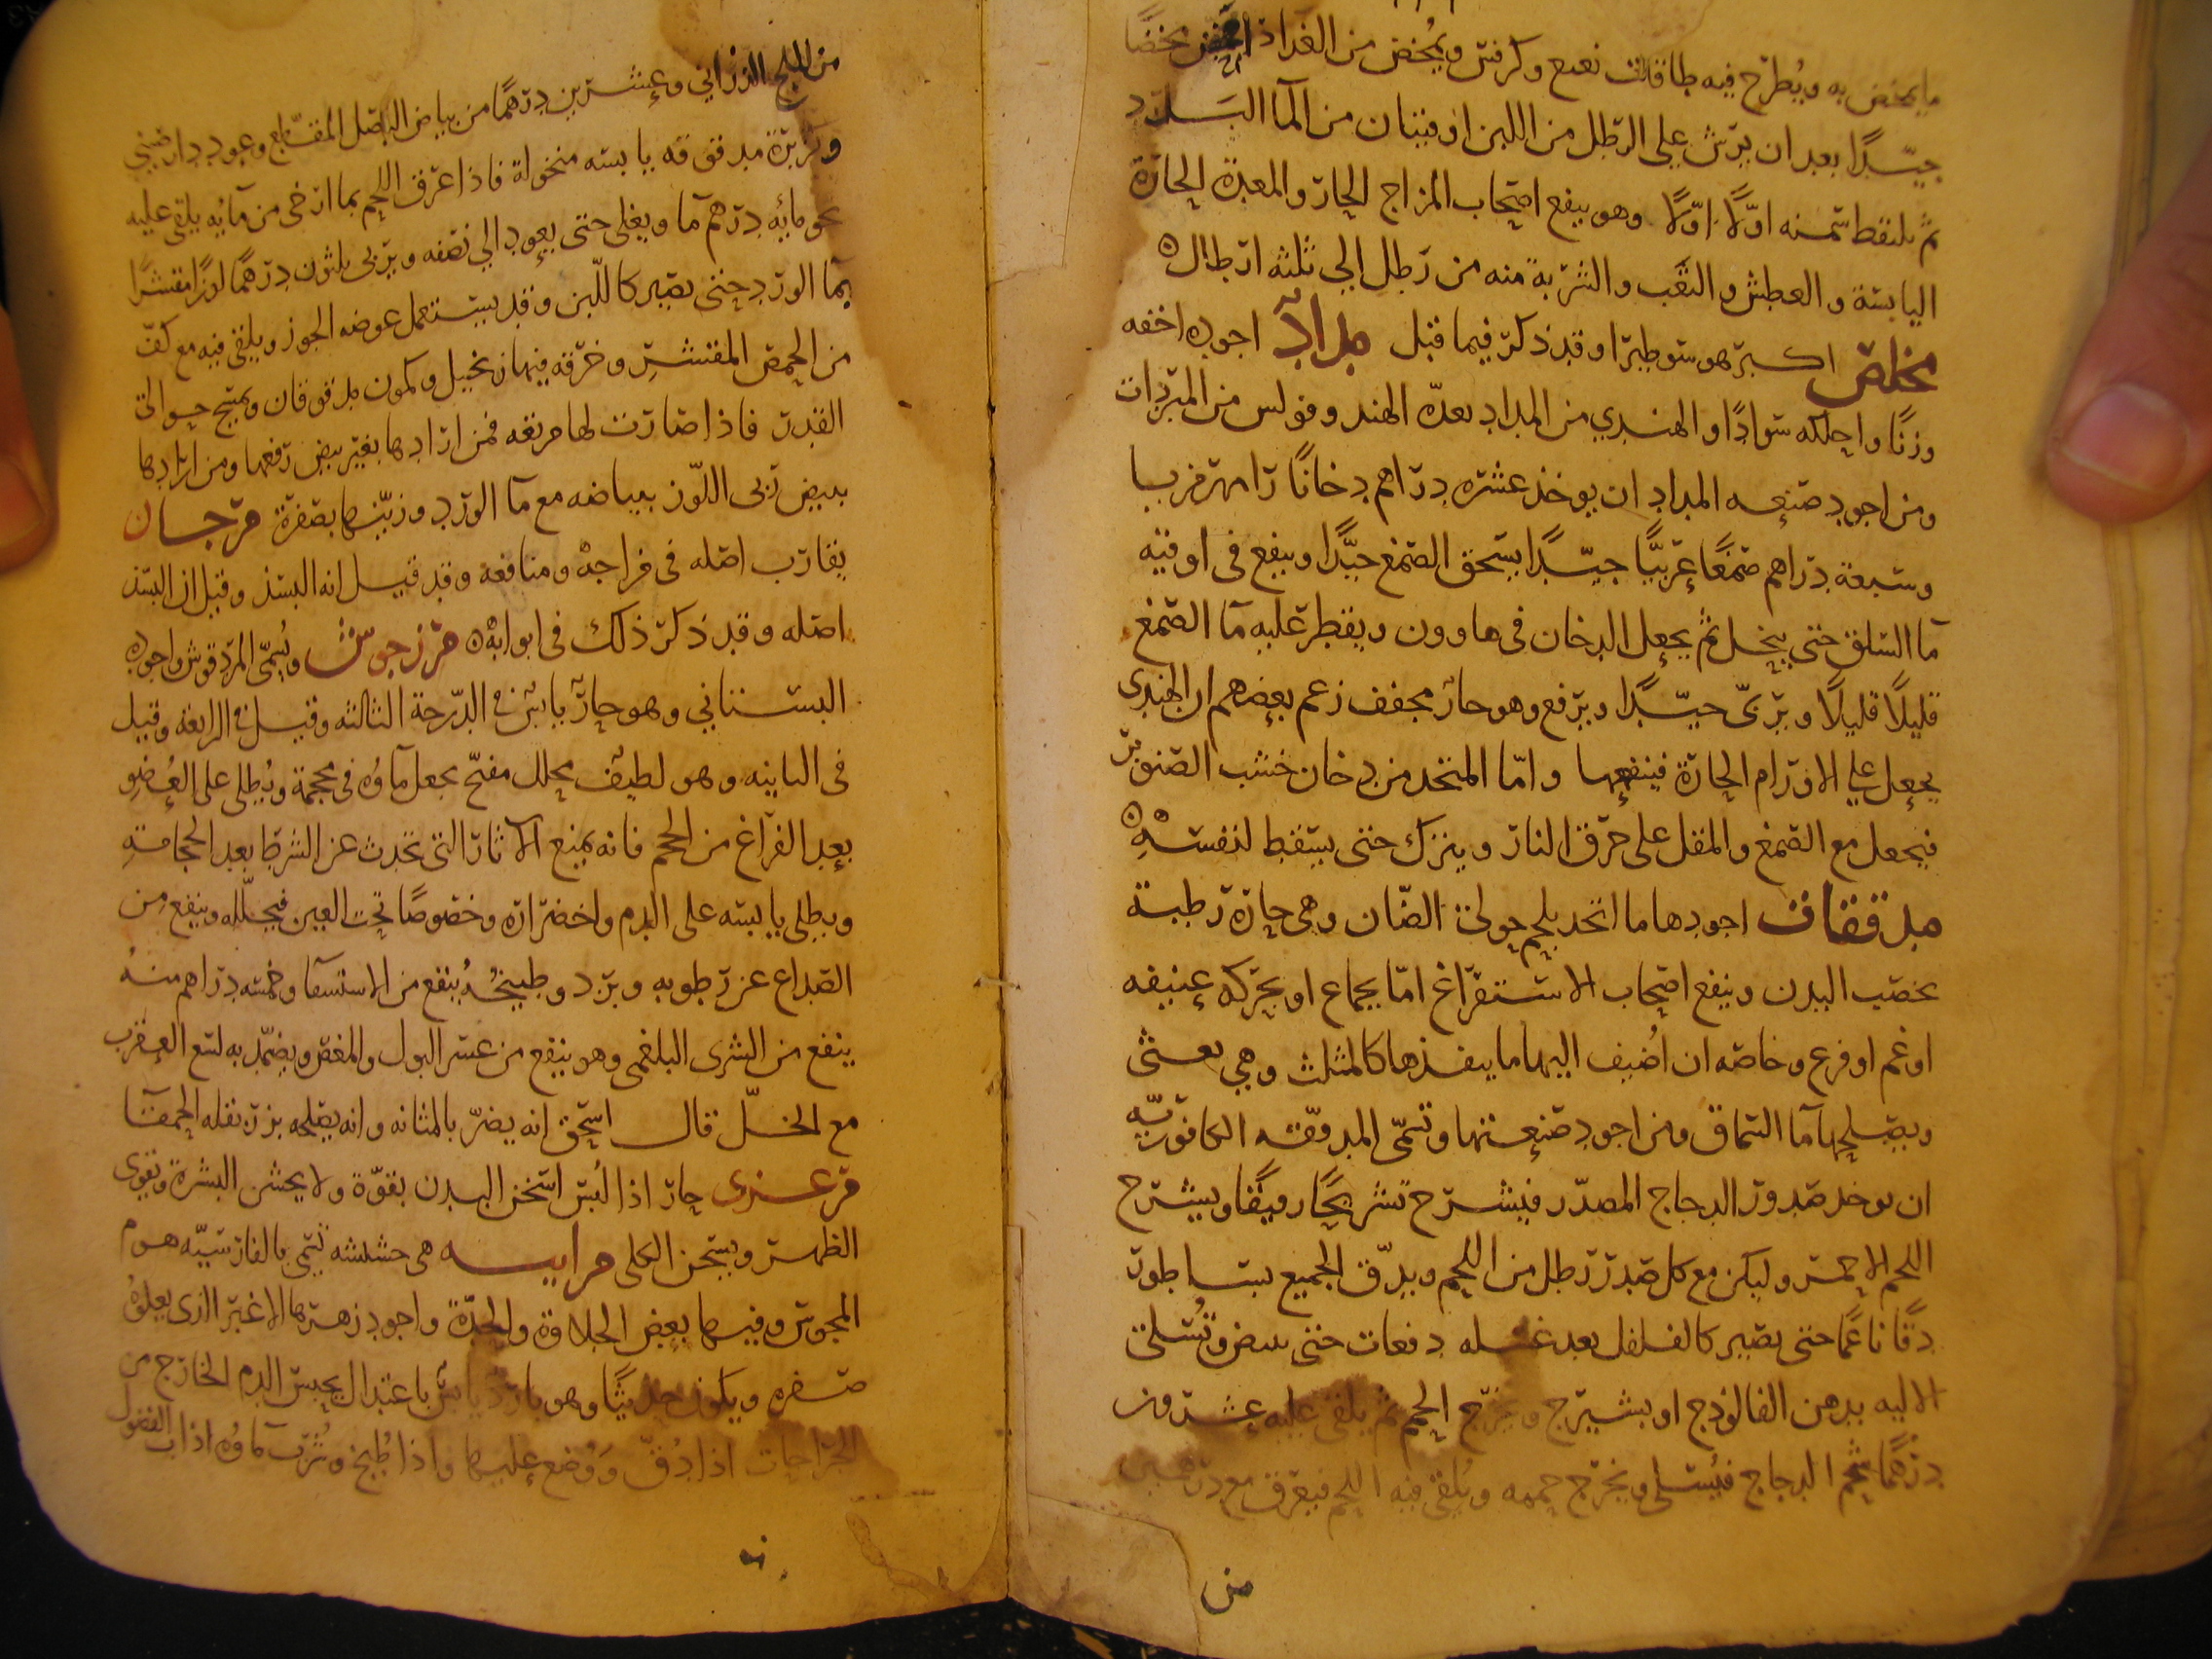 ما يمخض به ويُطرح فيه طاقات نعنع وكرفس ويُمخض من الغد اذا مخضًا
جيّدًا بعد ان يرش على الرطل من اللبن اوقيتان من المآ البارد
ثم يلتقط سمنه اوّلًا اوّلًا وهو ينفع اصحاب المزاج الحار والمعدة الحارة
اليابسة والعطش والتعب والشربة منه من رطل الى ثلثه ارطال
مخلص اكبر هو سوطيرا وقد ذكر فيما قبل مداد اجوده اخفه
وزنًا واحلكه سوادًا والهندي من المداد يعدّه الهند وفولس من المبردات
ومن اجود صنعه المداد ان يوخذ عشره دراهم دخانًا رامهرمزيا
وسبعة دراهم صمغًا عربيًّا جيّدًا يسحق الصمغ جيّدًا وينقع فى اوقيه
مآ السلق حتى ينحل ثم يجعل الدخان فى هاوون ويقطر عليه مآ الصمغ
قليلًا قليلًا ويربىّ جيّدًا ويرفع وهو حار مجفف زعم بعضهم ان الهندى
يجعل على الاورام الحارة فينفعها وامّا المتخد من دخان خشب الصنوبر
فيجعل مع الصمغ والمقل على حرق النار ويترك حتى يسقط لنفسه
مدققات اجودها ما اتخد بلحم حولى الضان وهى حارة رطبة
تخصب البدن وينفع اصحاب الاستفراغ امّا بجماع او بحركه عنيفه
او غم او فزع وخاصه ان اُضيف اليها ما ينفذها كالمثلث وهي تعطش
ويصلحها مآ السماق ومن اجود صنعتها وتسمّى المدققه الكافوريّه
ان يوخد صدور الدجاج المصدّر فيشرح تشريحًا رقيقًا ويشرح
اللحم الاحمر وليكن مع كل صدر رطل من اللحم ويدّق الجميع بساطور
دقًا ناعمًا حتى يصير كالفلفل بعد غسله دفعات حتى يبيض وتُسلى
الاليه بدهن الفالوذج او بشيرج ويخرج الحم ثم يلقى عليه عشرون
درهمًا شحم الدجاج فيُسلى ويخرج حممه ويُلقى فيه اللحم فيعرق مع درهمين
من
من الملح الاندرانى وعشرين درهمًا من بياض البصل المقطّع وعود دارصينى
وكزبرة مدقوقه يابسه منخولة فاذا عرق اللحم بما ارخى من مآيه يلقى عليه
نحو مائه درهم مآ ويغلى حتى يعود الى نصفه ويربى ثلثون درهمًا لوزًا مقشرًا
بمآ الورد حتى يصير كاللّبن وقد يستعمل عوضه الجوز ويلقى فيه مع كفّ
من الحمص المقشر وخرقه فيها زنجبيل وكمون مدقوقان ويمسح حوالى
القدر فاذا صارت لها مرىقه فمن ارادها بغير بيض رفعها ومن ارادها
ببيض ربى اللّوز ببياضه مع مآ الورد وزيّنها بصفرة مرجان
يقارب اصله فى مزاجه ومنافعه وقد قيل انه البسذ وقيل ان البسّذ
اصله وقد ذكر ذلك فى ابوابه مرزجوش ويُسمّى المردقوش واجوده
البستاني وهو حارّ يابس فى الدّرجة الثالثه وقيل فى الرابعه وقيل
فى الثانيه وهو لطيف محلل مفتّح يجعل مآوُه فى محجمة ويُطلى على العُضو
بعد الفراغ من الحجم فانه يمنع الآثار التى تحدث عن الشرط بعد الحجامة
ويطلى يابسه على الدم واخضراره وخصوصًا تحت العين فيحلّله وينفع من
الصداع عن رطوبه وبرد وطبيخُهُ ينفع من الاستسقآ وخمسه دراهم منهُ
ينفع من الشرى البلغمى وهو ينفع من عسر البول والمغص ويضمّد به لسع العقرب
مع الخلّ قال اسحق انه يضرّ بالمثانه وانه يصلحه بزر بقله الحمقآ
مرعزى حار اذا لُبس اسخن البدن بقوّة ولا يخشن البشرة ويقوى
الظهر ويسخن الكلى مرابيه هى حشيشه تسمى بالفارسيّه هوم
المجوس وفيها بعض الحلاوة والحدّة واجود زهرها الاغبر الذى يعلوهُ
صفره ويكون حديثًا وهو بارد يابس باعتدال يحبس الدم الخارج من
الجراحات اذا دُقّ وَوُضع عليها واذا طُبخ وشُرب مآوُه اذاب الفضول